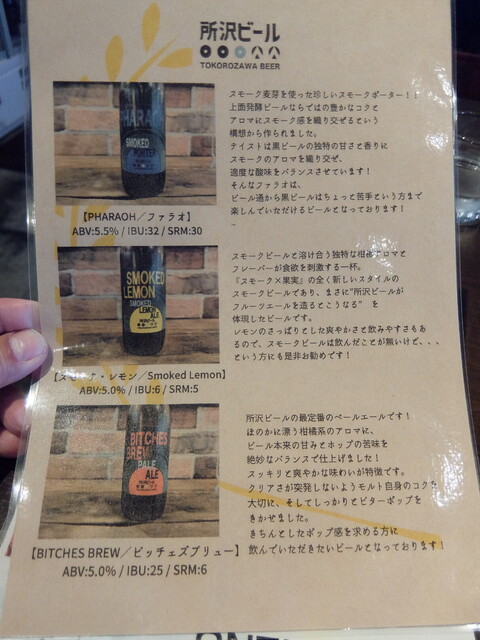 所沢ビール
TOKOROZAWA BEER
PHARAOH
SMOKED
PORTER
スモーク麦芽を使った珍しいスモークポーター！！
上面発酵ビールならではの豊かなコクと
アロマにスモーク感を織り交ぜるという
構想から作られました。
テイストは黒ビールの独特の甘さと香りに
スモークのアロマを織り交ぜ、
適度な酸味をバランスさせています！
そんなファラオは、
ビール通から黒ビールはちょっと苦手という方まで
楽しんでいただけるビールとなっております！
【PHARAOH／ファラオ】
ABV:5.5% / IBU:32 / SRM:30
SMOKED
LEMON
SMOKED
LEMON
ALE
スモークビールと溶け合う独特な柑橘アロマと
フレーバーが食欲を刺激する一杯。
『スモーク×果実』の全く新しいスタイルの
スモークビールであり、まさに"所沢ビールが
フルーツエールを造るとこうなる" を
体現したビールです。
レモンのさっぱりとした爽やかさと飲みやすさもあ
るので、スモークビールは飲んだことが無いけど、、、
という方にも是非お勧めです！
【スモーク・レモン／Smoked Lemon】
ABV:5.0% / IBU:6 / SRM:5
BITCHES
BREW
PALE
ALE
所沢ビールの最定番のペールエールです！
ほのかに漂う柑橘系のアロマに、
ビール本来の甘みとホップの苦味を
絶妙なバランスで仕上げました！
スッキリと爽やかな味わいが特徴です。
クリアさが突発しないようモルト自身のコクを
大切に、そしてしっかりとビターホップを
きかせました。
きちんとしたホップ感を求める方に
飲んでいただきたいビールとなっております！
【BITCHES BREW／ビッチェズブリュー】
ABV:5.0% / IBU:25 / SRM:6